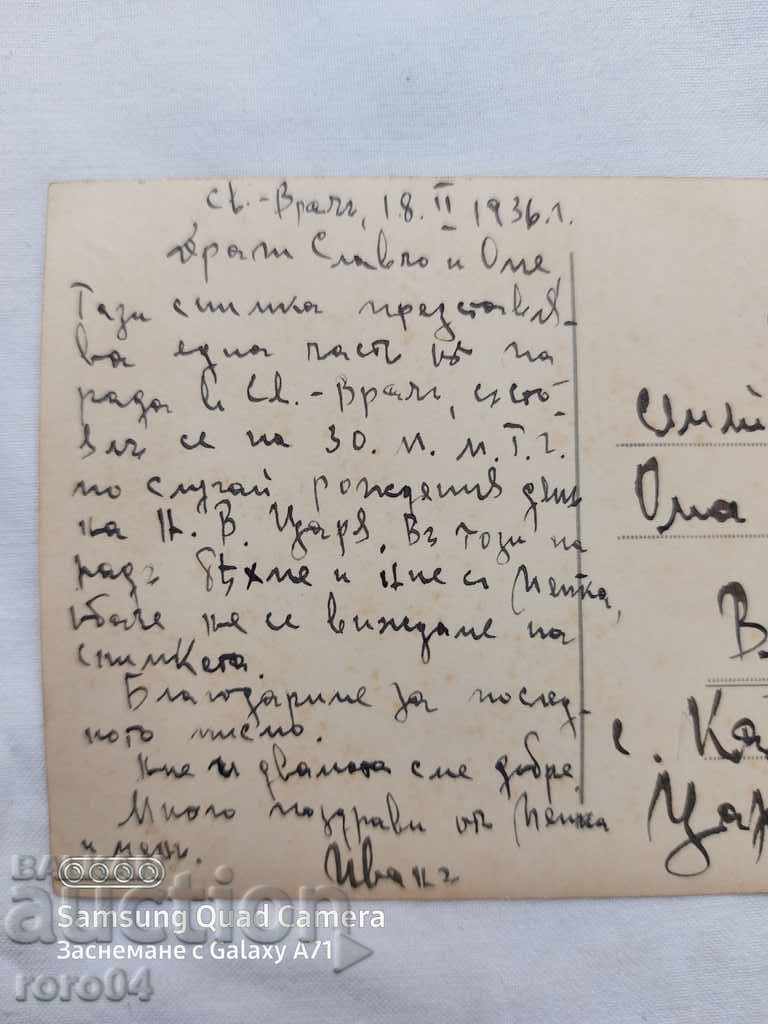 Св.-Врачъ, 18. II 1936 г.
Драги Славчо и Оле
Тази снимка представля-
ва една часть отъ па
рада въ Св.-Врачъ, състо
ялъ се на 30. м. м. т. г.
по случай рождения день
на Н. В. Царя. Въ този па
радъ бѣхме и ние съ Ленка,
обаче не се виждаме на
снимката.
Благодариме за послед-
ното писмо.
Ние и двамата сме добре.
Много поздрави отъ Ленка
и менъ.
Иванъ
Ола
В.
с. Ка
Цар
BALKAN
auction
roro04
Samsung Quad Camera
Заснемане с Galaxy A71